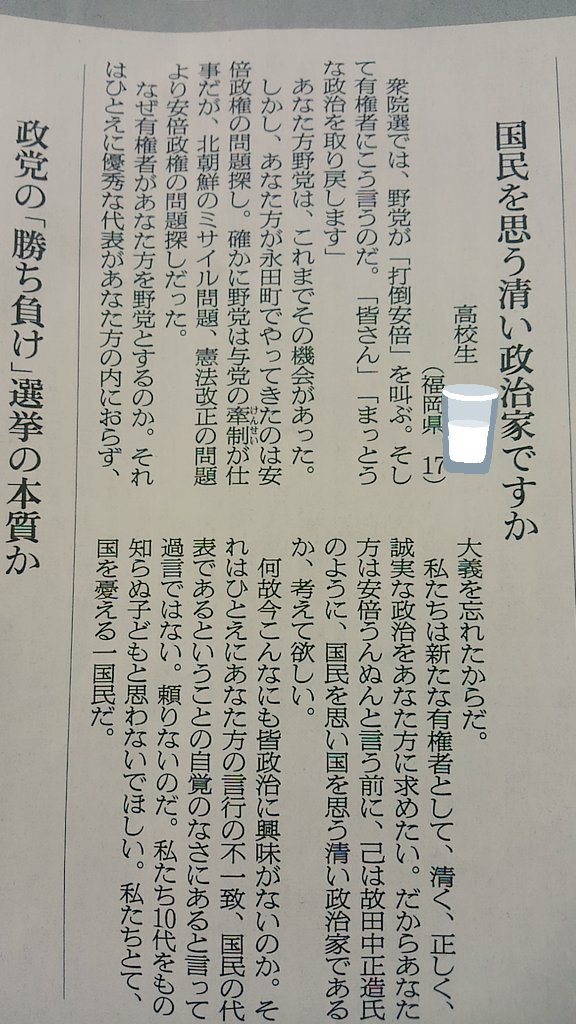 国民を思う清い政治家ですか
高校生
(福岡県 17)
衆院選では、野党が「打倒安倍」を叫ぶ。そし
て有権者にこう言うのだ。「皆さん」「まっとう
な政治を取り戻します」
あなた方野党は、これまでその機会があった。
しかし、あなた方が永田町でやってきたのは安
倍政権の問題探し。確かに野党は与党の牽制が仕
けんせい
事だが、北朝鮮のミサイル問題、憲法改正の問題
より安倍政権の問題探しだった。
なぜ有権者があなた方を野党とするのか。それ
はひとえに優秀な代表があなた方の内におらず、
大義を忘れたからだ。
私たちは新たな有権者として、清く、正しく、
誠実な政治をあなた方に求めたい。だからあなた
方は安倍うんぬんと言う前に、己は故田中正造氏
のように、国民を思い国を思う清い政治家である
か、考えて欲しい。
何故今こんなにも皆政治に興味がないのか。そ
れはひとえにあなた方の言行の不一致、国民の代
表であるということの自覚のなさにあると言って
過言ではない。頼りないのだ。私たち10代をもの
知らぬ子どもと思わないでほしい。私たちとて、
国を憂える一国民だ。
政党の「勝ち負け」選挙の本質か